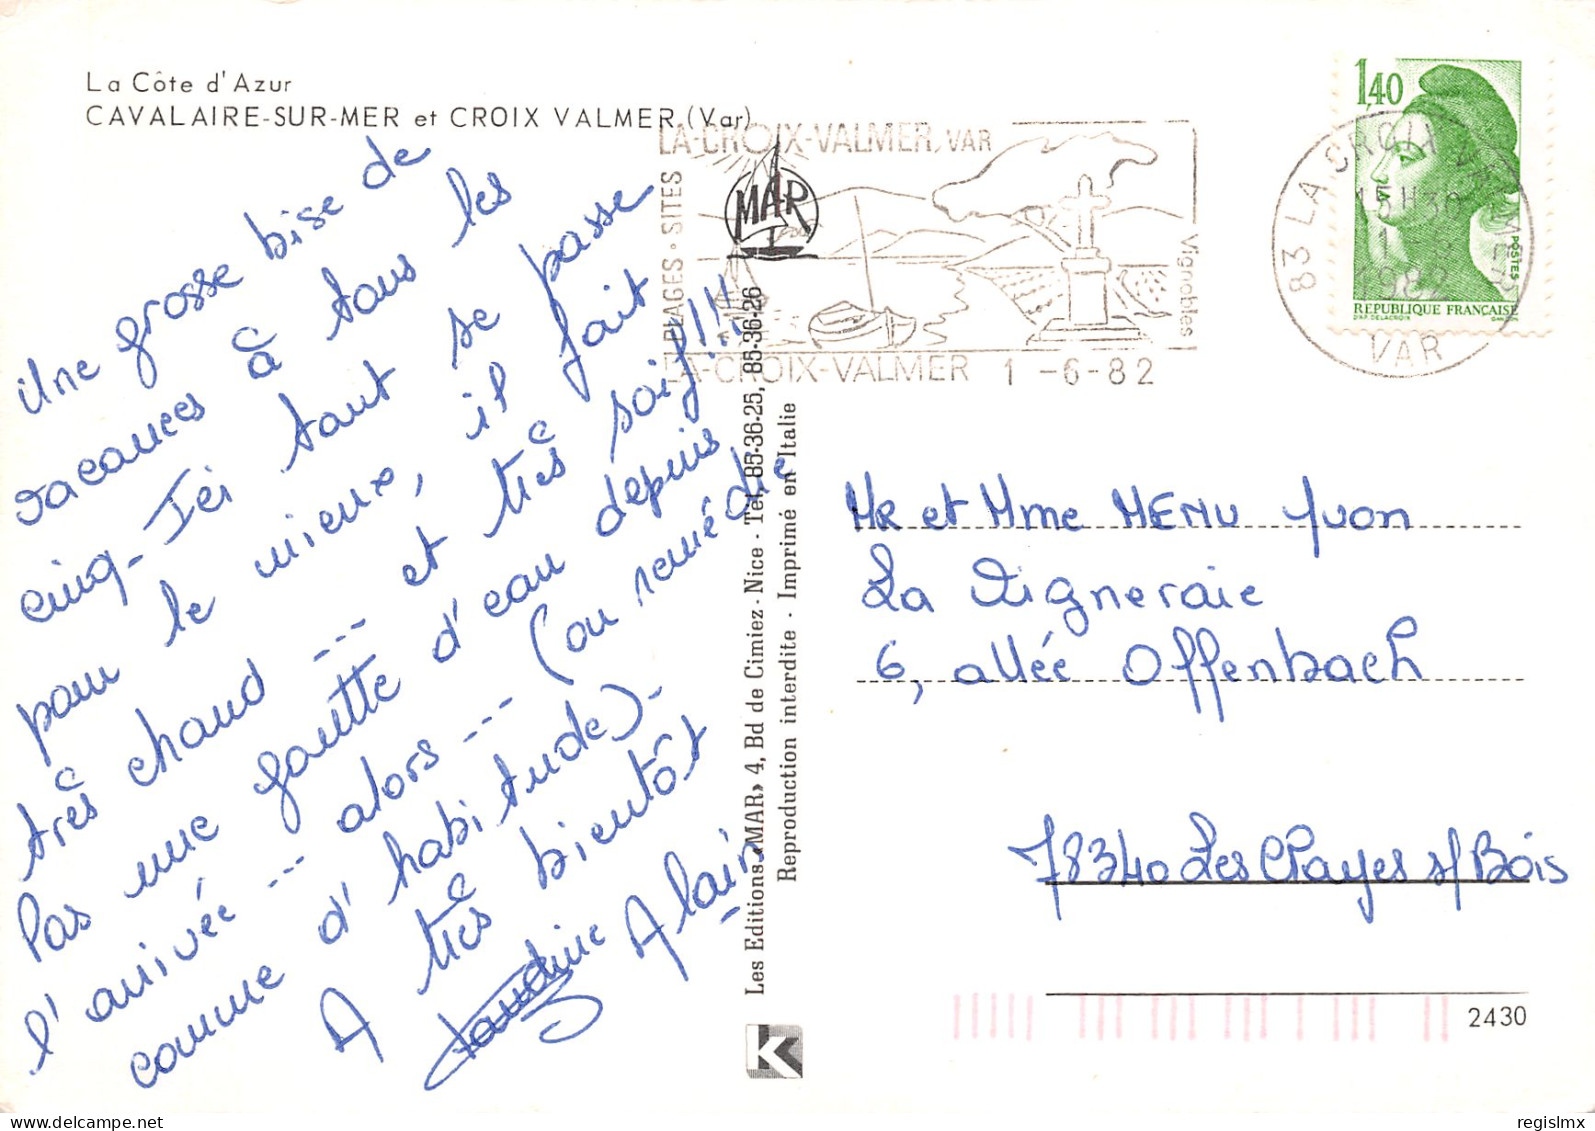 La Côte d'Azur
CAVALAIRE-SUR-MER et CROIX VALMER (Var)
Une grosse bise de
vacances à tous les
cinq - Ici tout se passe
pour le mieux, il fait
très chaud --- et très soif!!!!
Pas une goutte d'eau depuis
l'arrivée --- alors --- (on remédie
comme d'habitude) -
A très bientôt
Alain
LA-CROIX-VALMER, VAR
PLAGES · SITES
Vignobles
LA-CROIX-VALMER 1 -6-82
MAR
83 LA CROIX VALMER
15H30
1 - 6
1982
VAR
1,40
POSTES
REPUBLIQUE FRANÇAISE
D'AP. DELACROIX GANDON
Les Editions «MAR» 4, Bd de Cimiez - Nice - Tel. 85-36-25, 85-36-26
Reproduction interdite - Imprimé en Italie
MR et Mme MENU Yvon
La Vigneraie
6, allée Offenbach
78340 Les Clayes s/Bois
K
2430
regislmx